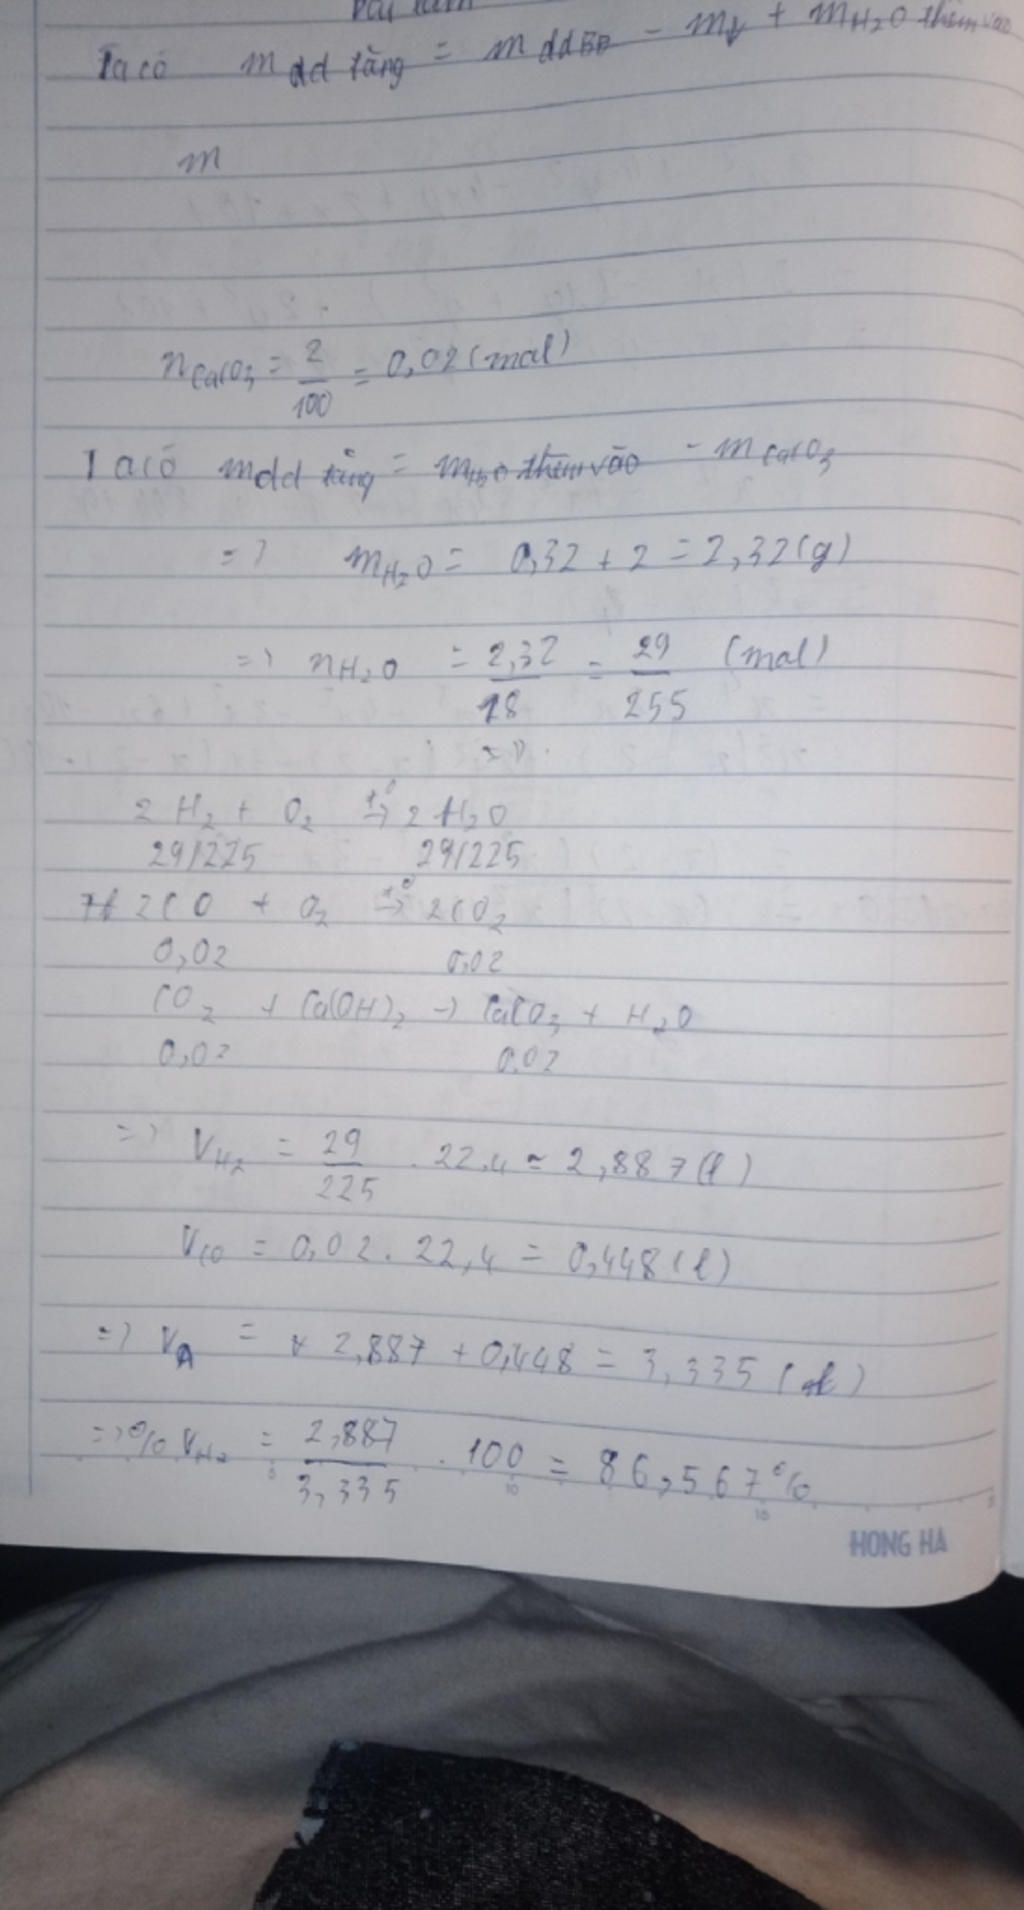 Bài làm
Ta có m dd tăng = m ddBĐ - m↓ + mH2O thêm vào
m
nCaCO3 = 2/100 = 0,02 (mol)
Ta có mdd tăng = mH2O thêm vào - mCaCO3
=> mH2O = 0,32 + 2 = 2,32 (g)
=> nH2O = 2,32/18 = 29/255 (mol)
2H2 + O2 t°→ 2H2O
29/225 29/225
2CO + O2 t°→ 2CO2
0,02 0,02
CO2 + Ca(OH)2 → CaCO3 + H2O
0,02 0,02
=> VH2 = 29/225 . 22,4 ≈ 2,887 (l)
VCO = 0,02 . 22,4 = 0,448 (l)
=> VA = 2,887 + 0,448 = 3,335 (l)
=> % VH2 = 2,887/3,335 . 100 = 86,567%
5 10 15
HONG HA